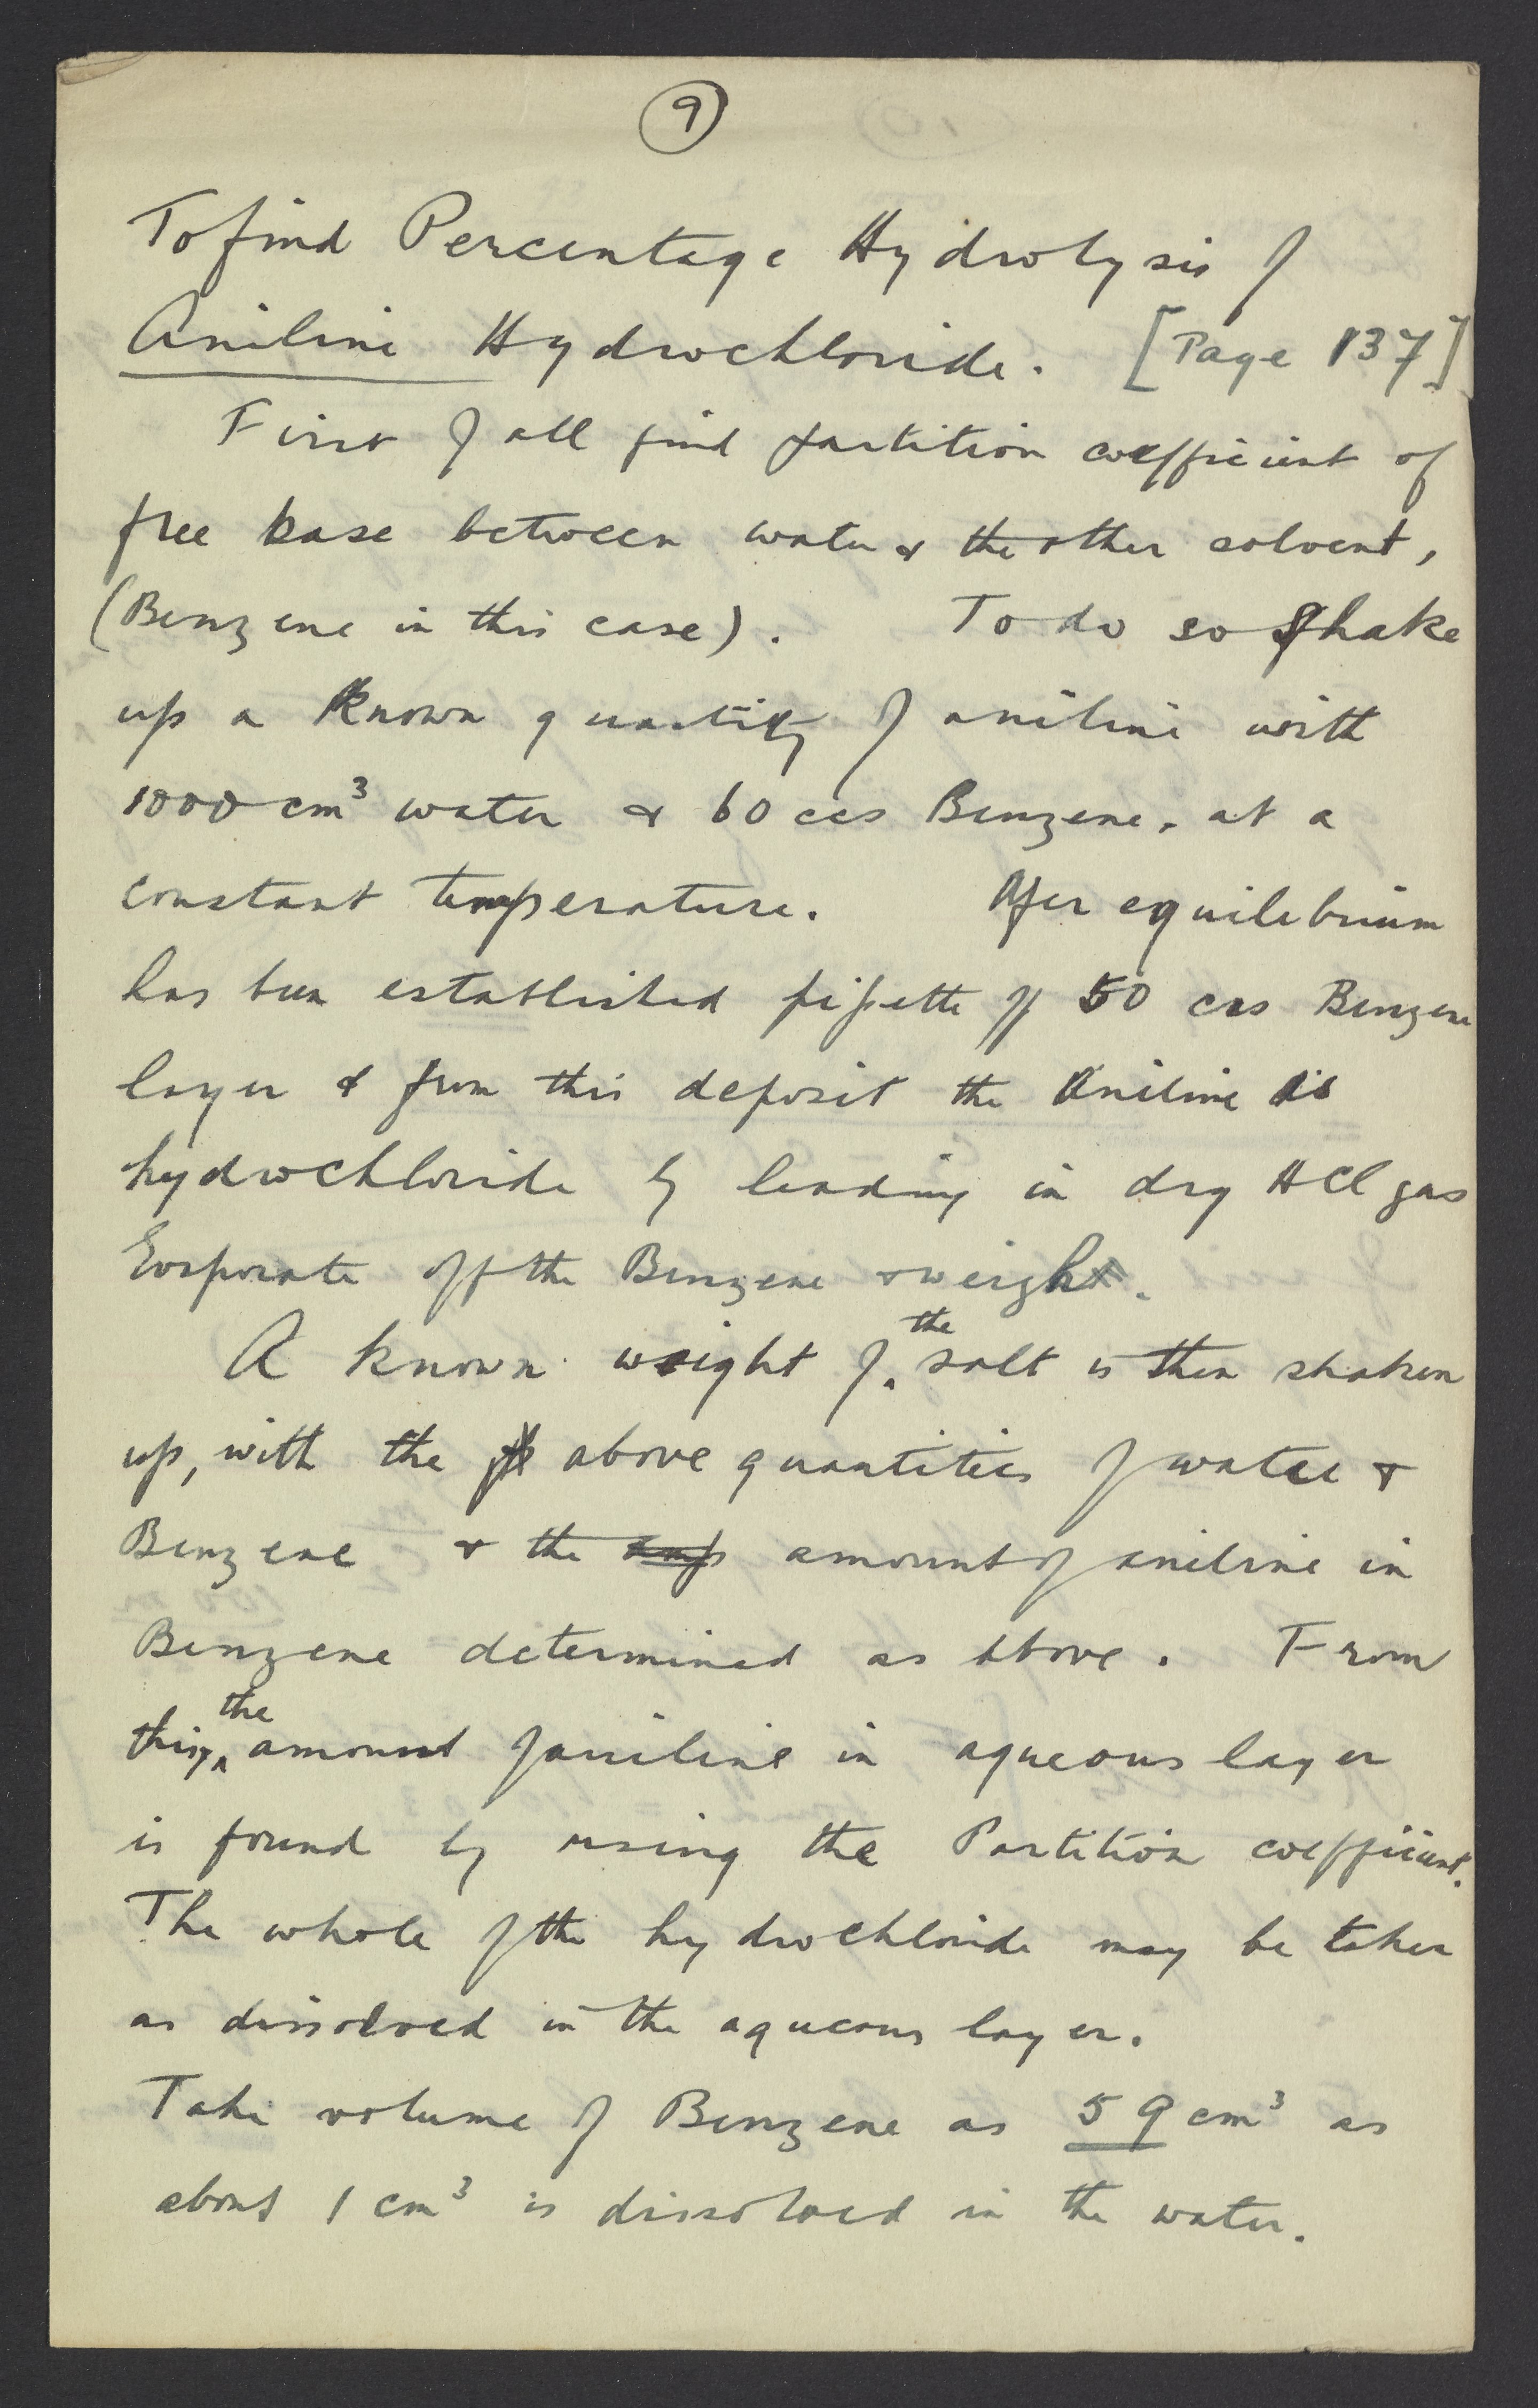 9
To find Percentage Hydrolysis of
Aniline Hydrochloride. [Page 137]
First of all find partition coefficient of
free base between water & the other solvent,
(Benzene in this case). To do so Shake
up a Known quantity of aniline with
1000 cm³ water & 60 ccs Benzene, at a
constant temperature. After equilibrium
has been established pipette off 50 ccs Benzene
layer & from this deposit the Aniline as
hydrochloride by leading in dry HCl gas
Evaporate off the Benzene & weigh.
A known weight of the salt is then shaken
up, with the above quantities of water &
Benzene & the amount of aniline in
Benzene determined as above. From
this, the amount of aniline in aqueous layer
is found by using the Partition coefficient.
The whole of the hydrochloride may be taken
as dissolved in the aqueous layer.
Take volume of Benzene as 59 cm³ as
about 1 cm³ is dissolved in the water.